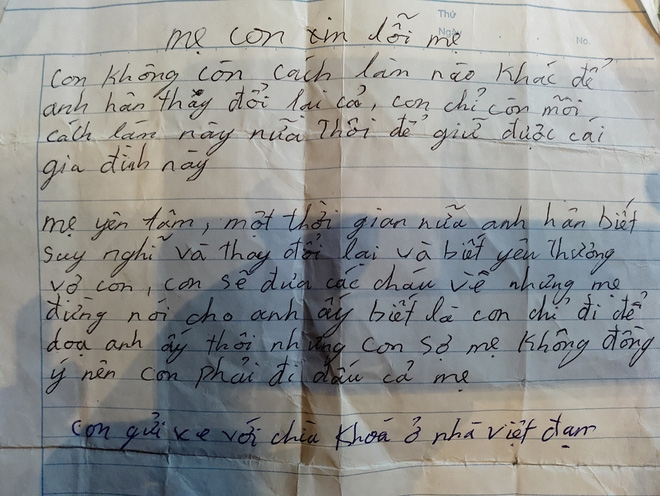 Thứ
Ngày
No.
mẹ con xin lỗi mẹ
con không còn cách làm nào khác để
anh hân thảy đổi lại cả, con chỉ còn mỗi
cách làm này nữa Thôi để giữ được cái
gia đình này
mẹ yên tâm, một thời gian nữa anh hân biết
suy nghĩ và thay đổi lại và biết yêu Thương
vợ con, con sẽ đưa các cháu về nhưng mẹ
đừng nói cho anh ấy biết là con chỉ đi để
doạ anh ấy thôi nhưng con sợ mẹ không đồng
ý nên con phải đi dấu cả mẹ
con gửi xe với chìa khoá ở nhà việt đạm